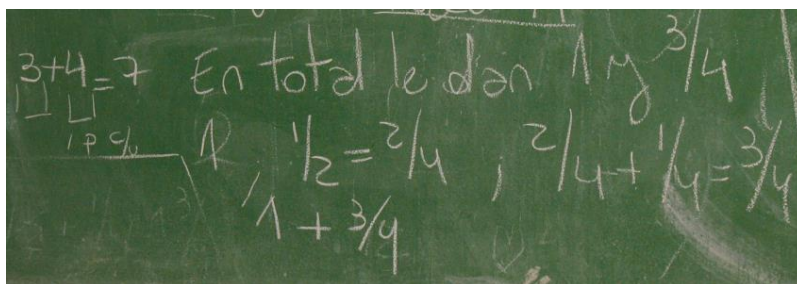 3+4=7 En total le dan 1 y 3/4
1 P c/u
1, 1/2 = 2/4 , 2/4 + 1/4 = 3/4
1 + 3/4